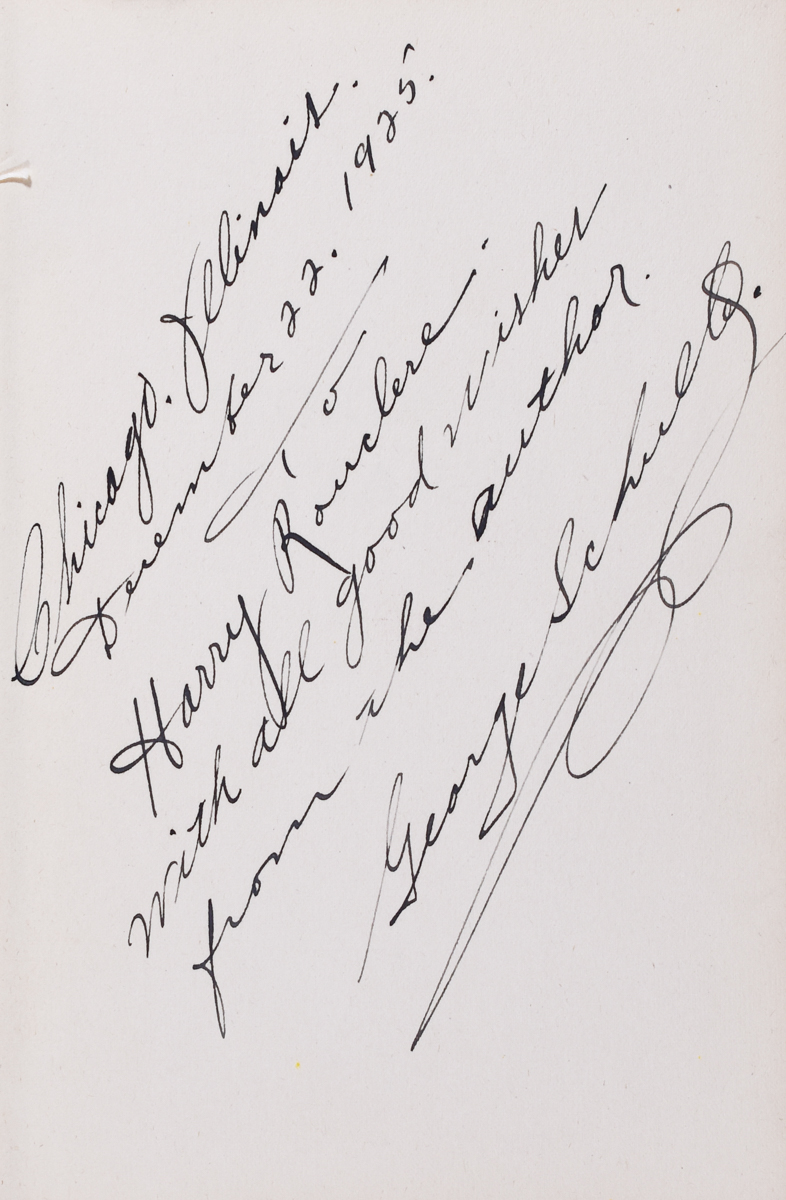 Chicago. Illinois.
December 22. 1925.
To
Harry Rouclere.
with all good wishes
from the author.
George Schulte.